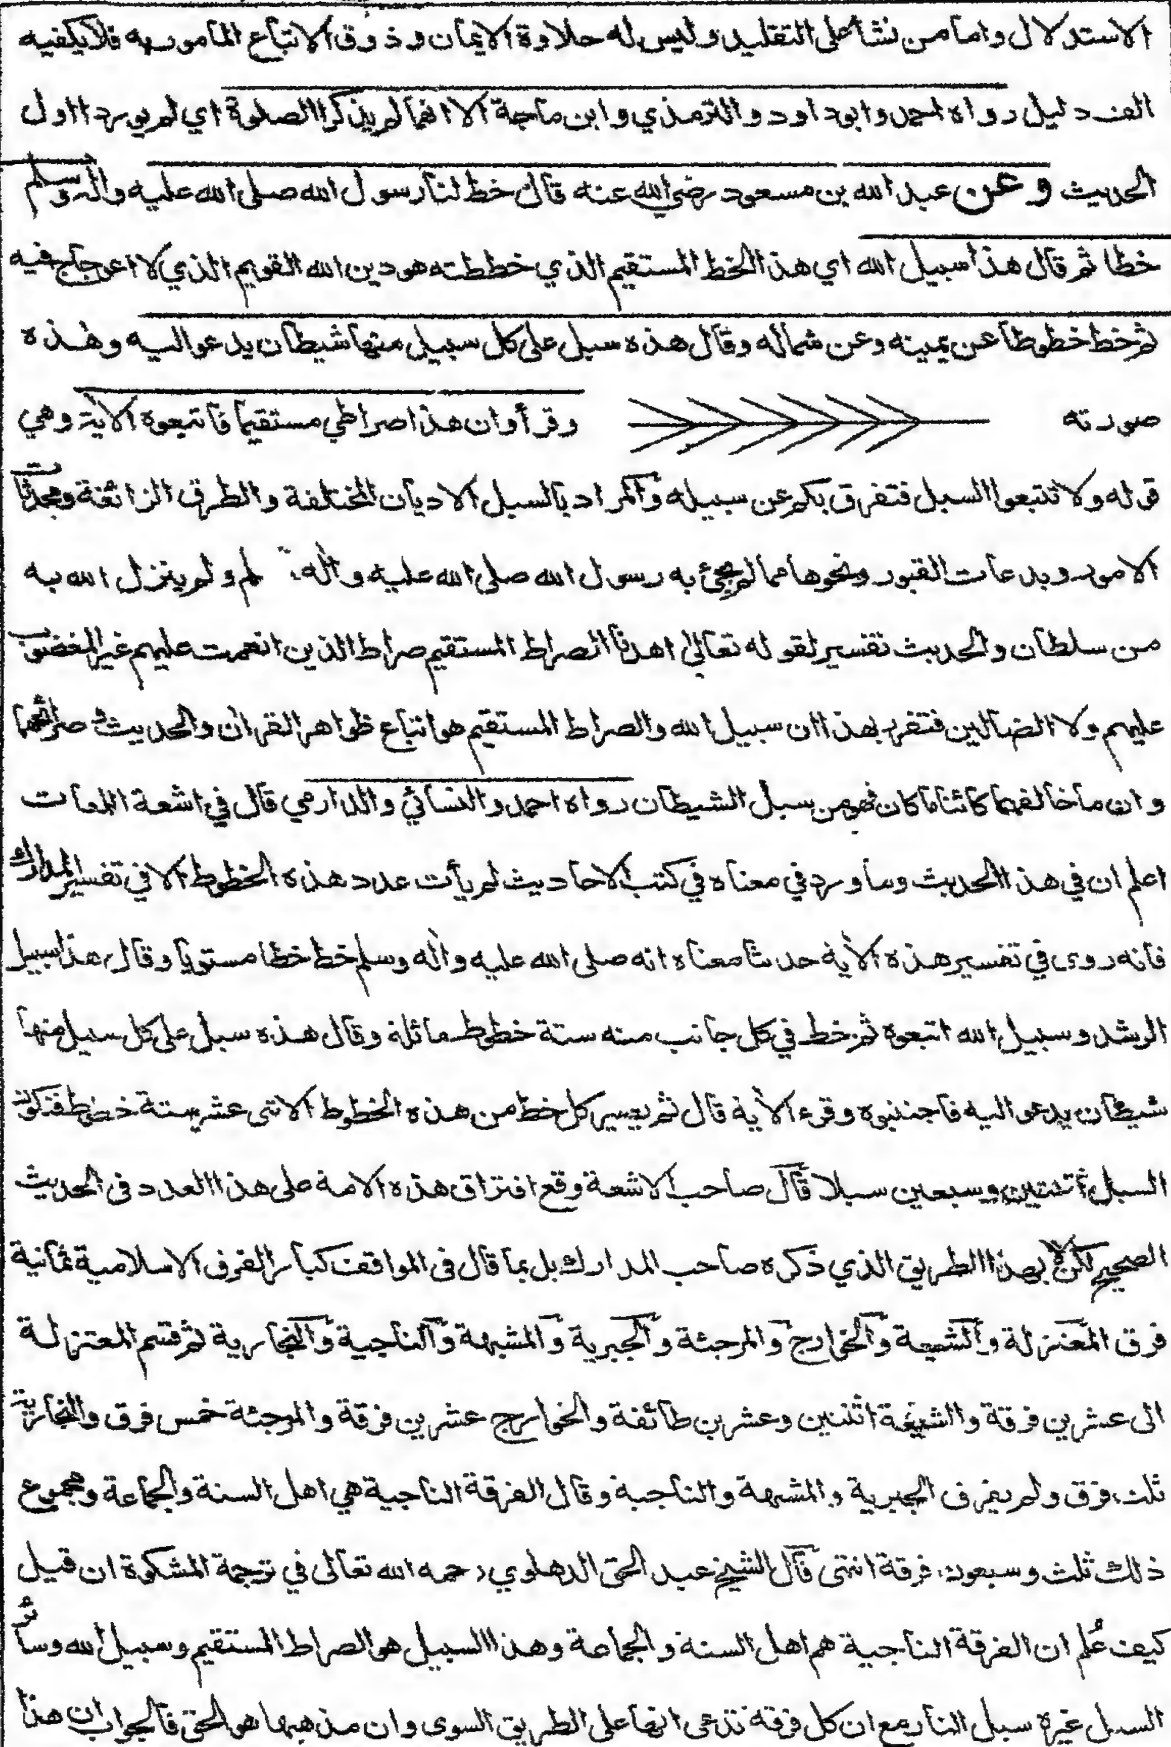 الاستدلال واما من نشأ على التقليد وليس له حلاوة الايمان وذوق الاتباع المأمور به فلا يكفيه
الف دليل رواه احمد وابوداود والترمذي وابن ماجة الا انهما لم يذكرا الصلوة اي لم يوردا اول
الحديث وعن عبد الله بن مسعود رضي الله عنه قال خط لنا رسول الله صلى الله عليه واله وسلم
خطا ثم قال هذا سبيل الله اي هذا الخط المستقيم الذي خططته هو دين الله القويم الذي لا اعوجاج فيه
ثم خط خطوطا عن يمينه وعن شماله وقال هذه سبل على كل سبيل منها شيطان يدعو اليه وهذه
صورته وقرأ وان هذا صراطي مستقيما فاتبعوه الاية وهي
قوله ولا تتبعوا السبل فتفرق بكم عن سبيله والمراد بالسبل الاديان المختلفة والطرق الزائغة ومحدثات
الامور وبدعات القبور ونحوها مما لم يجئ به رسول الله صلى الله عليه واله لم ولم ينزل الله به
من سلطان والحديث تفسير لقوله تعالى اهدنا الصراط المستقيم صراط الذين انعمت عليهم غير المغضوب
عليهم ولا الضالين فتقرر بهذا ان سبيل الله والصراط المستقيم هو اتباع ظواهر القران والحديث وصرائحهما
وان ما خالفهما كائنا ما كان فهو من سبل الشيطان رواه احمد والنسائي والدارمي قال في اشعة اللمعات
اعلم ان في هذا الحديث وما ورد في معناه في كتب الاحاديث لم يأت عدد هذه الخطوط الا في تفسير المدارك
فانه روى في تفسير هذه الاية حديثا معناه انه صلى الله عليه واله وسلم خط خطا مستويا وقال هذا سبيل
الرشد وسبيل الله اتبعوه ثم خط في كل جانب منه ستة خطوط مائلة وقال هذه سبل على كل سبيل منها
شيطان يدعو اليه فاجتنبوه وقرء الاية قال ثم يصير كل خط من هذه الخطوط الاثنى عشر ستة خطوط فتكون
السبل اثنتين وسبعين سبلا قال صاحب الاشعة وقع افتراق هذه الامة على هذا العدد فى الحديث
الصحيح لكن لا بهذا الطريق الذي ذكره صاحب المدارك بل بما قال فى المواقف كبار الفرق الاسلامية ثمانية
فرق المعتزلة والشيعة والخوارج والمرجئة والجبرية والمشبهة والناجية والنجارية ثم قسم المعتزلة
الى عشرين فرقة والشيعة اثنتين وعشرين طائفة والخوارج عشرين فرقة والمرجئة خمس فرق والنجارية
ثلث فرق ولم يفرق الجبرية والمشبهة والناجية وقال الفرقة الناجية هي اهل السنة والجماعة ومجموع
ذلك ثلث وسبعون فرقة انتهى قال الشيخ عبد الحق الدهلوي رحمه الله تعالى في ترجمة المشكوة ان قيل
كيف عُلم ان الفرقة الناجية هم اهل السنة والجماعة وهذا السبيل هو الصراط المستقيم وسبيل الله وسائر
السبل غيره سبل النار مع ان كل فرقة تدعى انها على الطريق السوى وان مذهبها هو الحق فالجواب ان هذا